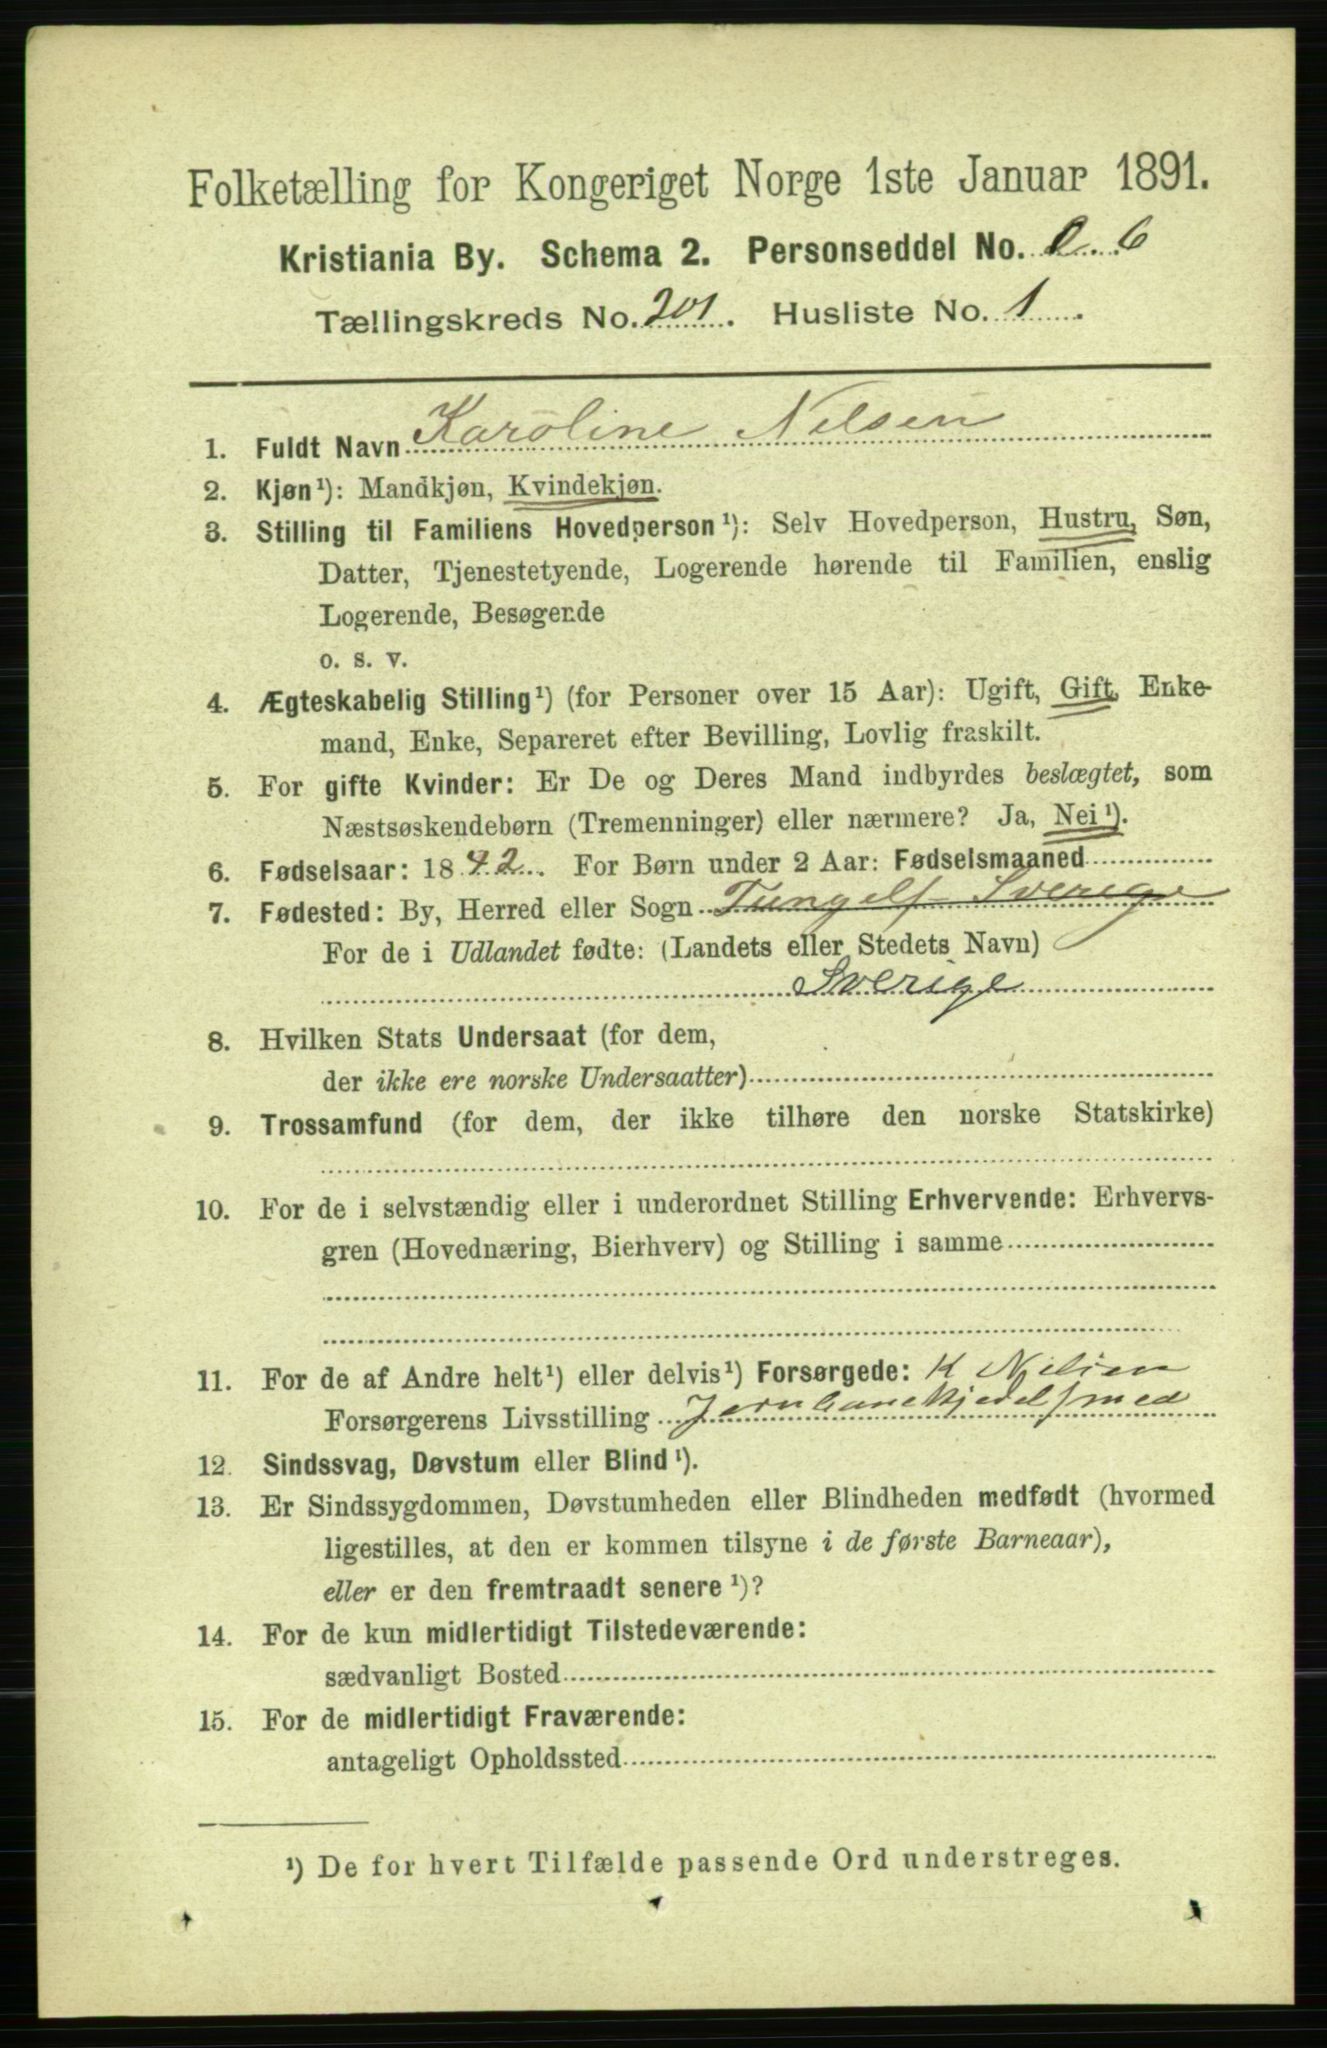 Folketælling for Kongeriget Norge 1ste Januar 1891.
Kristiania By. Schema 2. Personseddel No. 6
Tællingskreds No. 201. Husliste No. 1
1. Fuldt Navn Karoline Nelsen
2. Kjøn¹): Mandkjøn, Kvindekjøn.
3. Stilling til Familiens Hovedperson¹): Selv Hovedperson, Hustru, Søn,
Datter, Tjenestetyende, Logerende hørende til Familien, enslig
Logerende, Besøgende
o. s. v.
4. Ægteskabelig Stilling¹) (for Personer over 15 Aar): Ugift, Gift, Enke-
mand, Enke, Separeret efter Bevilling, Lovlig fraskilt.
5. For gifte Kvinder: Er De og Deres Mand indbyrdes beslægtet, som
Næstsøskendebørn (Tremenninger) eller nærmere? Ja, Nei¹).
6. Fødselsaar: 1842. For Børn under 2 Aar: Fødselsmaaned
7. Fødested: By, Herred eller Sogn Tungelf Sverige
For de i Udlandet fødte: (Landets eller Stedets Navn)
Sverige
8. Hvilken Stats Undersaat (for dem,
der ikke ere norske Undersaatter)
9. Trossamfund (for dem, der ikke tilhøre den norske Statskirke)
10. For de i selvstændig eller i underordnet Stilling Erhvervende: Erhvervs-
gren (Hovednæring, Bierhverv) og Stilling i samme
11. For de af Andre helt¹) eller delvis¹) Forsørgede: K Nilsen
Forsørgerens Livsstilling Jernbanekjedelsmed
12. Sindssvag, Døvstum eller Blind¹).
13. Er Sindssygdommen, Døvstumheden eller Blindheden medfødt (hvormed
ligestilles, at den er kommen tilsyne i de første Barneaar),
eller er den fremtraadt senere¹)?
14. For de kun midlertidigt Tilstedeværende:
sædvanligt Bosted
15. For de midlertidigt Fraværende:
antageligt Opholdssted
¹) De for hvert Tilfælde passende Ord understreges.